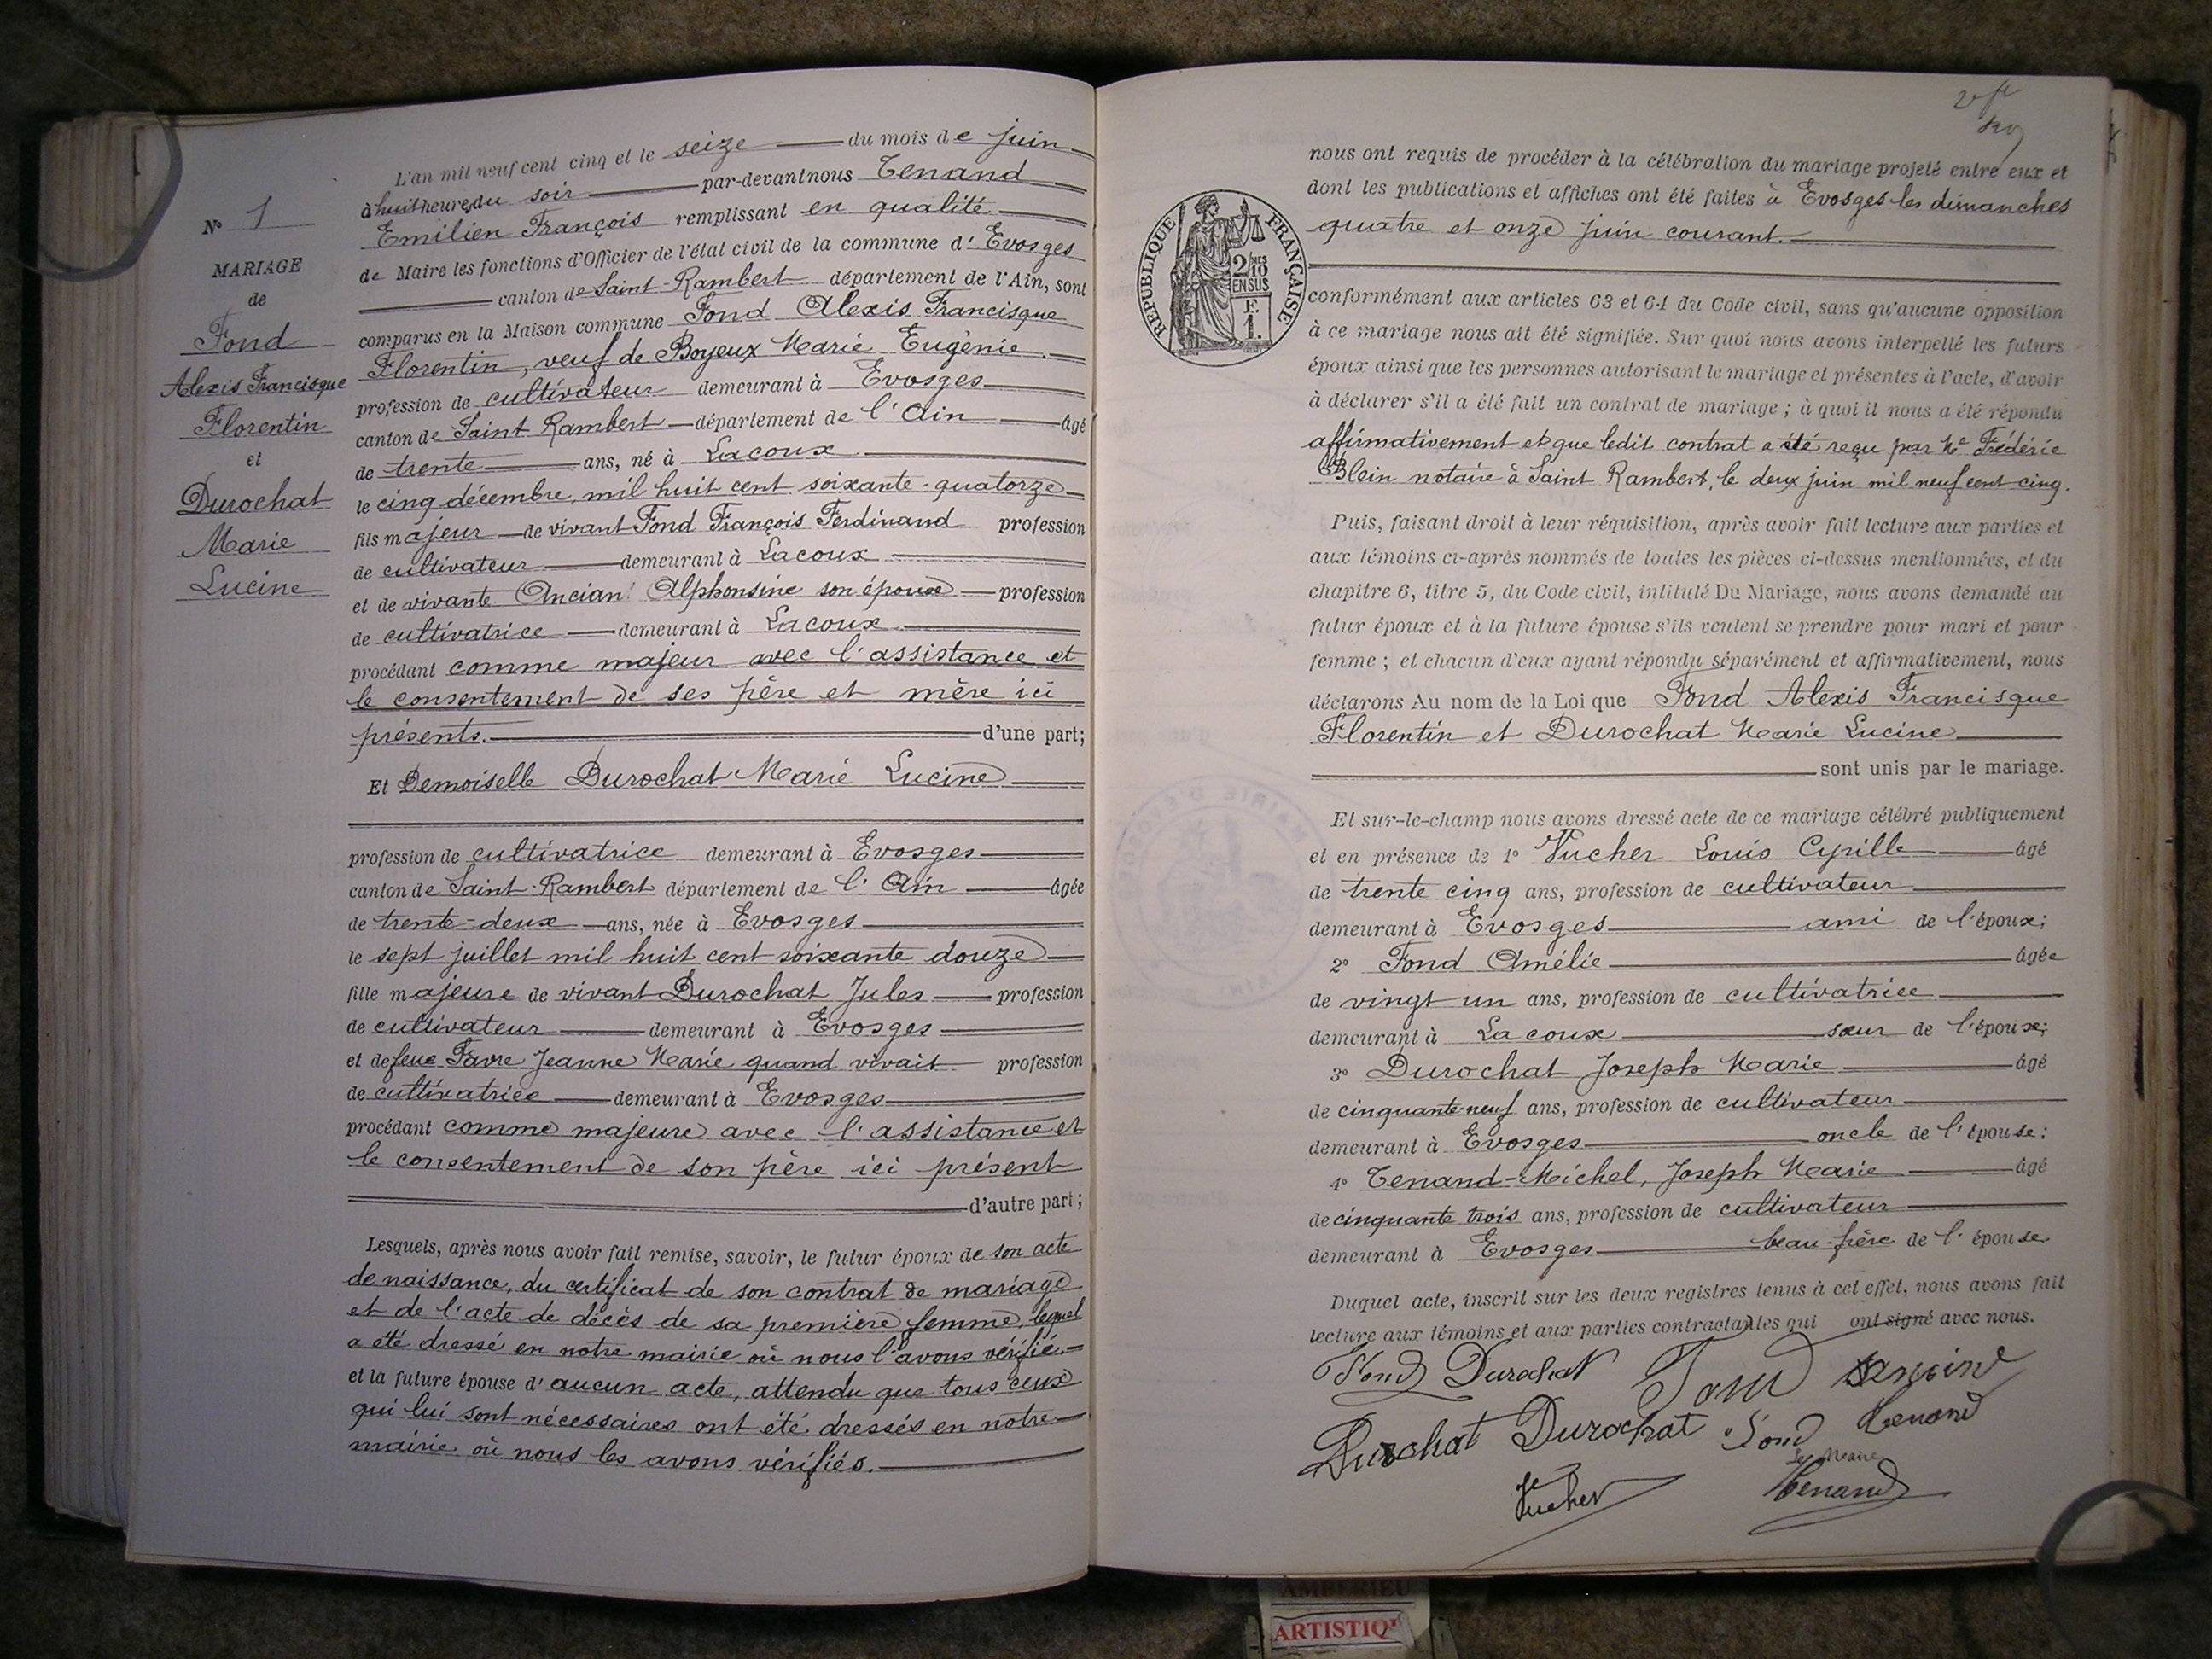 N° 1
MARIAGE
de
Fond
Alexis Francisque
Florentin
et
Durochat
Marie
Lucine
L'an mil neuf cent cinq et le seize du mois de juin
à huit heures du soir par-devant nous Tenand
Emilien François remplissant en qualité
de Maire les fonctions d'Officier de l'état civil de la commune d'Evosges
canton de Saint-Rambert département de l'Ain, sont
comparus en la Maison commune Fond Alexis Francisque
Florentin, veuf de Boyeux Marie Eugénie.
profession de cultivateur demeurant à Evosges
canton de Saint Rambert département de l'Ain âgé
de trente ans, né à Lacoux
le cinq décembre, mil huit cent soixante-quatorze
fils majeur de vivant Fond François Ferdinand profession
de cultivateur demeurant à Lacoux
et de vivante Ancian Alphonsine son épouse profession
de cultivatrice demeurant à Lacoux
procédant comme majeur avec l'assistance et
le consentement de ses père et mère ici
présents. d'une part;
Et Demoiselle Durochat Marie Lucine
profession de cultivatrice demeurant à Evosges
canton de Saint-Rambert département de l'Ain âgée
de trente-deux ans, née à Evosges
le sept juillet mil huit cent soixante douze
fille majeure de vivant Durochat Jules profession
de cultivateur demeurant à Evosges
et de feue Favre Jeanne Marie quand vivait profession
de cultivatrice demeurant à Evosges
procédant comme majeure avec l'assistance et
le consentement de son père ici présent
d'autre part;
Lesquels, après nous avoir fait remise, savoir, le futur époux de son acte
de naissance, du certificat de son contrat de mariage
et de l'acte de décès de sa première femme, lequel
a été dressé en notre mairie où nous l'avons vérifié.
et la future épouse d'aucun acte, attendu que tous ceux
qui lui sont nécessaires ont été dressés en notre
mairie où nous les avons vérifiés.
nous ont requis de procéder à la célébration du mariage projeté entre eux et
dont les publications et affiches ont été faites à Evosges les dimanches
quatre et onze juin courant.
RÉPUBLIQUE FRANÇAISE
2/10 MES
EN SUS
F.
1.
conformément aux articles 63 et 64 du Code civil, sans qu'aucune opposition
à ce mariage nous ait été signifiée. Sur quoi nous avons interpellé les futurs
époux ainsi que les personnes autorisant le mariage et présentes à l'acte, d'avoir
à déclarer s'il a été fait un contrat de mariage ; à quoi il nous a été répondu
affirmativement et que ledit contrat a été reçu par Me Frédéric
Blein notaire à Saint Rambert, le deux juin mil neuf cent cinq.
Puis, faisant droit à leur réquisition, après avoir fait lecture aux parties et
aux témoins ci-après nommés de toutes les pièces ci-dessus mentionnées, et du
chapitre 6, titre 5, du Code civil, intitulé Du Mariage, nous avons demandé au
futur époux et à la future épouse s'ils veulent se prendre pour mari et pour
femme ; et chacun d'eux ayant répondu séparément et affirmativement, nous
déclarons Au nom de la Loi que Fond Alexis Francisque
Florentin et Durochat Marie Lucine
sont unis par le mariage.
Et sur-le-champ nous avons dressé acte de ce mariage célébré publiquement
et en présence de 1° Vucher Louis Cyrille âgé
de trente cinq ans, profession de cultivateur
demeurant à Evosges ami de l'époux;
2° Fond Amélie âgée
de vingt un ans, profession de cultivatrice
demeurant à Lacoux sœur de l'époux;
3° Durochat Joseph Marie âgé
de cinquante-neuf ans, profession de cultivateur
demeurant à Evosges oncle de l'épouse;
4° Tenand-Michel, Joseph Marie âgé
de cinquante trois ans, profession de cultivateur
demeurant à Evosges beau-frère de l'épouse
Duquel acte, inscrit sur les deux registres tenus à cet effet, nous avons fait
lecture aux témoins et aux parties contractantes qui ont signé avec nous.
Fond Durochat Fond
Durochat Durochat Fond Tenand
Le Maire
Vucher Tenand
AMBERIEU
ARTISTIQ